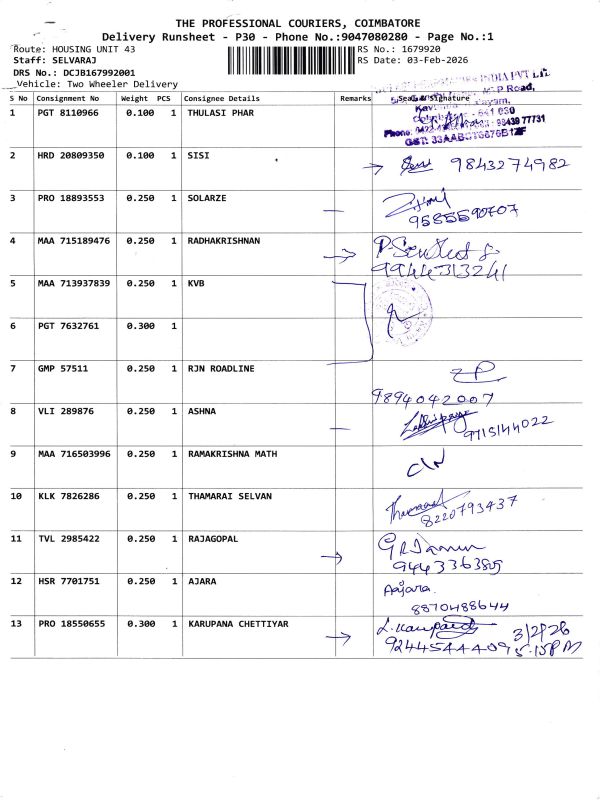 THE PROFESSIONAL COURIERS, COIMBATORE
Delivery Runsheet - P30 - Phone No.:9047080280 - Page No.:1
Route: HOUSING UNIT 43
RS No.: 1679920
Staff: SELVARAJ
RS Date: 03-Feb-2026
DRS No.: DCJB167992001
Vehicle: Two Wheeler Delivery
S No Consignment No Weight PCS Consignee Details Remarks Seal & Signature
1 PGT 8110966 0.100 1 THULASI PHAR
INDIA PVT LTD
Road,
641 030
98439 77731
2 HRD 20809350 0.100 1 SISI
9843274982
3 PRO 18893553 0.250 1 SOLARZE
9585590707
4 MAA 715189476 0.250 1 RADHAKRISHNAN
9944313241
5 MAA 713937839 0.250 1 KVB
6 PGT 7632761 0.300 1
7 GMP 57511 0.250 1 RJN ROADLINE
9894042007
8 VLI 289876 0.250 1 ASHNA
9715144022
9 MAA 716503996 0.250 1 RAMAKRISHNA MATH
10 KLK 7826286 0.250 1 THAMARAI SELVAN
8220793437
11 TVL 2985422 0.250 1 RAJAGOPAL
12 HSR 7701751 0.250 1 AJARA
Aajara.
8870488644
13 PRO 18550655 0.300 1 KARUPANA CHETTIYAR
3/2/26
9244544409 5.15PM